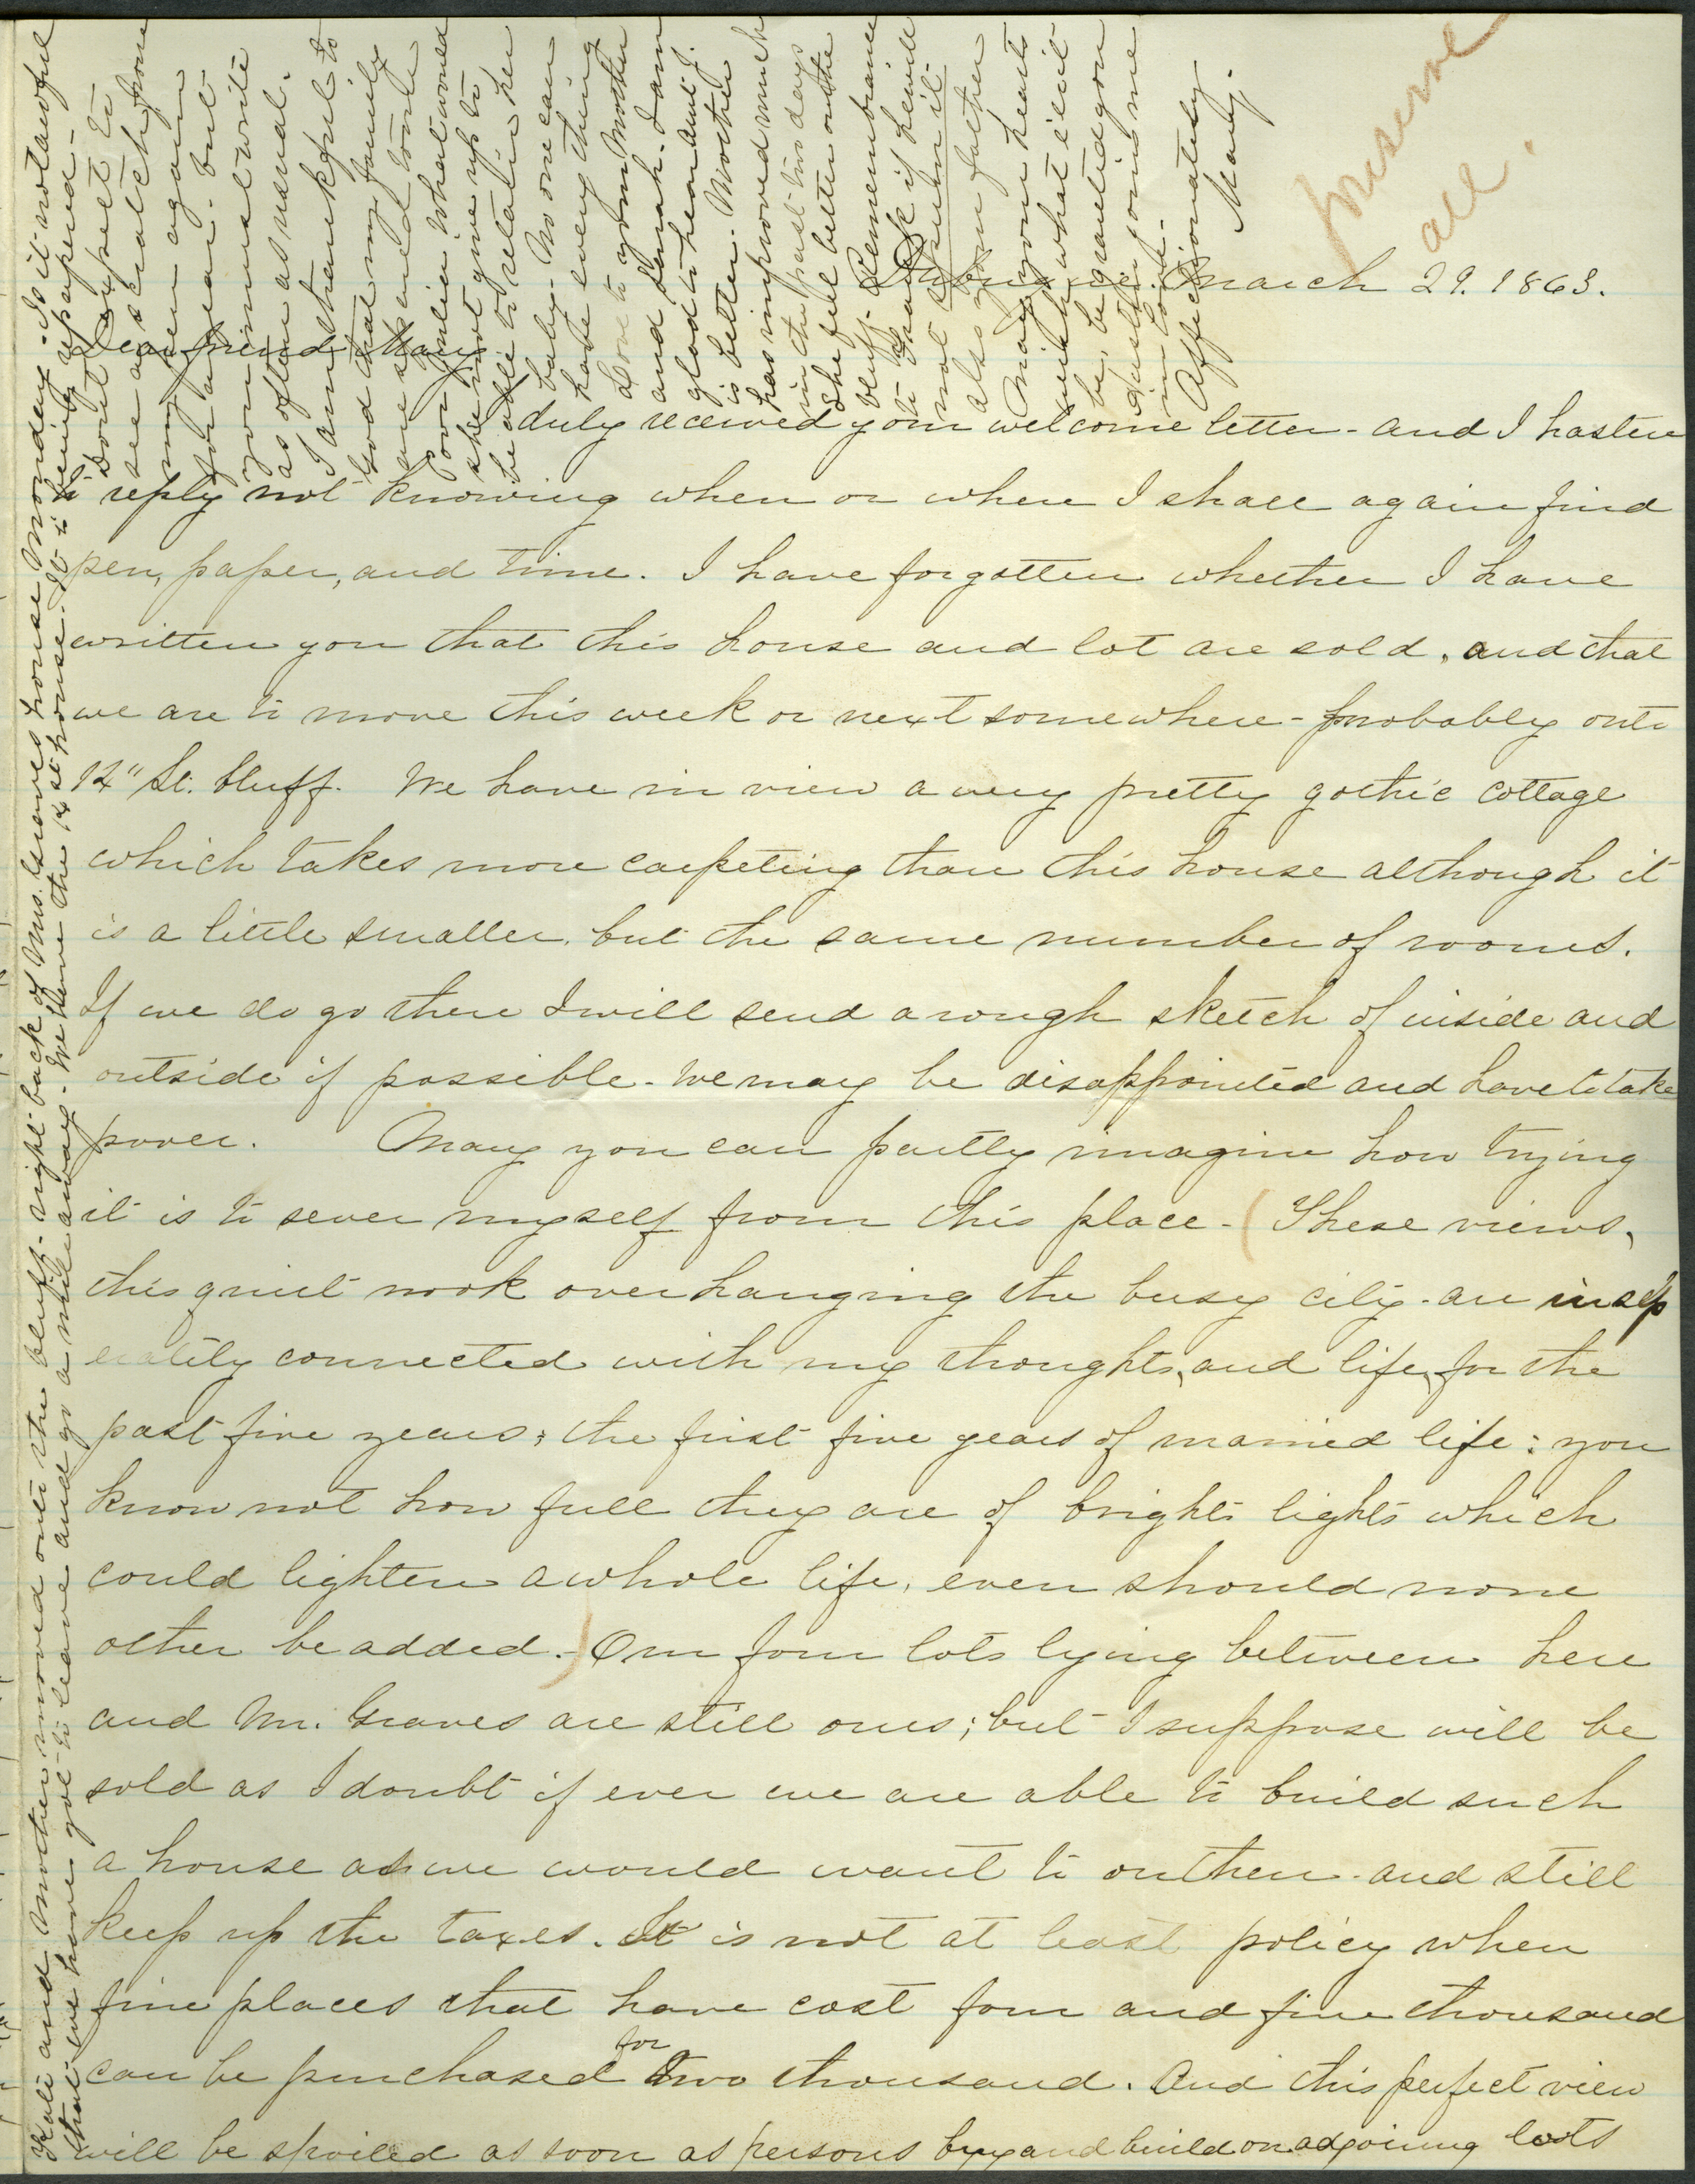 Preserve
all.
Dubuque. March 29. 1863.
Dear friend Mary
I duly received your welcome letter - and I hasten
to reply not knowing when or where I shall again find
pen, paper, and time. I have forgotten whether I have
written you that this house and lot are sold, and that
we are to move this week or next somewhere - probably onto
14" St. bluff. We have in view a very pretty gothic cottage
which takes more carpeting than this house although it
is a little smaller, but the same number of rooms.
If we do go there I will send a rough sketch of inside and
outside if possible - We may be disappointed and have to take
poorer. Mary you can partly imagine how trying
it is to sever myself from this place - (These views,
this quiet nook overhanging the busy city - are insep
erably connected with my thoughts, and life, for the
past five years; the first five years of married life: you
know not how full they are of bright lights which
could lighten a whole life, even should none
other be added.-) Our four lots lying between here
and Mr. Graves are still ours; but I suppose will be
sold as I doubt if ever we are able to build such
a house as we would want to on them - and still
keep up the taxes. It is not at least policy when
fine places that have cost four and five thousand
can be purchased for two thousand. And this perfect view
will be spoiled as soon as persons buy and build on adjoining lots
Kate and Mother moved onto the bluff - right back of Mrs. Graves house Monday - Is it not awful
that we have got to leave and go a mile away - We have the 14 St house. It is being repapered -
Dont expect to
see a scratch from
my pen again
for a year - but
you must write
as often as usual.
I am thankful to
God that my family
are spared to me
Poor Julia what would
she not give up to
be able to retain her
baby - No one can
have every thing
Love to your Mother
and Sarah. I am
glad to hear Aunt J.
is better - Mother
has improved much
in the past two days
She feels better on the
bluff - Remembrance
to Frank if he will
not spurn it -
also your father
May your hearts
wish what e'er it
be, be granted you
Austin joins me
in love -
Affectionately
Mary.